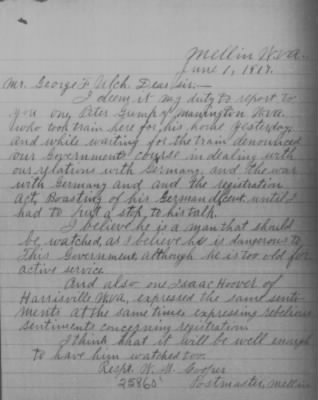 Mellin W.Va.
June 1, 1917.
Mr. George F. Ulch. Dear sir:—
I deem it my duty to report to
you one, Peter Gump of Mannington W.Va.
who took train here for his home yesterday
and while waiting for the train denounced
our Government's course in dealing with
our relations with Germany, and the war
with Germany and and the registration
Act, Boasting of his German decent, until I
had to put a stop, to his talk.
I believe he is a man that should
be watched, as I believe he is dangerous to
This Government, although he is too old for
active service.
And also one Isaac Hoover of
Harrisville W.Va., expressed the same senti-
ments at the same times expressing rebelious
sentiments concerning registration.
I think that it will be well enough
to have him watched too.
Respt. W. M. Cooper
Postmaster, Mellin